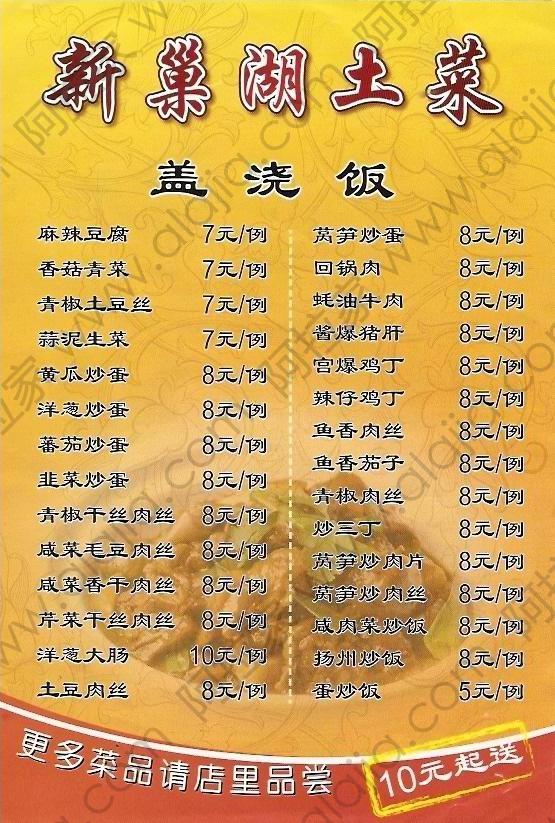 新巢湖土菜
盖浇饭
麻辣豆腐 7元/例
香菇青菜 7元/例
青椒土豆丝 7元/例
蒜泥生菜 7元/例
黄瓜炒蛋 8元/例
洋葱炒蛋 8元/例
蕃茄炒蛋 8元/例
韭菜炒蛋 8元/例
青椒干丝肉丝 8元/例
咸菜毛豆肉丝 8元/例
咸菜香干肉丝 8元/例
芹菜干丝肉丝 8元/例
洋葱大肠 10元/例
土豆肉丝 8元/例
莴笋炒蛋 8元/例
回锅肉 8元/例
蚝油牛肉 8元/例
酱爆猪肝 8元/例
宫爆鸡丁 8元/例
辣仔鸡丁 8元/例
鱼香肉丝 8元/例
鱼香茄子 8元/例
青椒肉丝 8元/例
炒三丁 8元/例
莴笋炒肉片 8元/例
莴笋炒肉丝 8元/例
咸肉菜炒饭 8元/例
扬州炒饭 8元/例
蛋炒饭 5元/例
更多菜品请店里品尝
10元起送
阿拉家 www.alajia.com